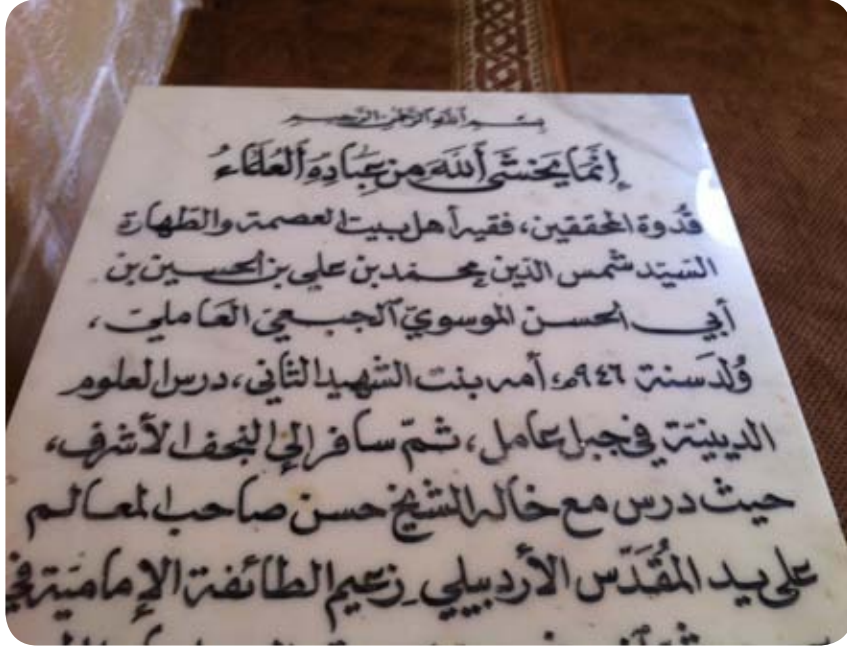 بسم الله الرحمن الرحيم
إنَّمَا يَخشَى أَللَّهَ مِن عِبَادِهِ أَلعُلَمَاءُ
قُدوة المحققين، فقيه أهل بيت العصمة والطهارة
السَيّد شمس الدّين محمد بن علي بن الحسين بن
أبي الحسن الموسويّ الجبعيّ العَامليّ،
وُلدَ سنة ٩٤٦هـ، أمه بنت الشهيد الثاني، درس العلوم
الدينيّة في جبل عامل، ثمّ سافر إلى النجف الأشرف،
حيث درس مع خاله الشيخ حسن صاحب المعالم
على يد المُقَدَّس الأردبيلي زعيم الطائفة الإماميّة في